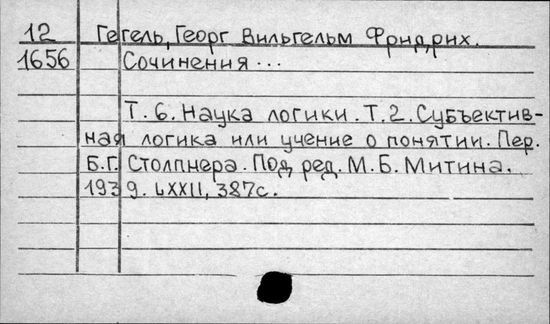 12 Гегель, Георг Вильгельм Фридрих.
1656 Сочинения ...
Т. 6. Наука логики. Т. 2. Субъектив-
ная логика или учение о понятии. Пер.
Б.Г. Столпнера. Под ред. М.Б. Митина.
1939. LXXII, 387с.